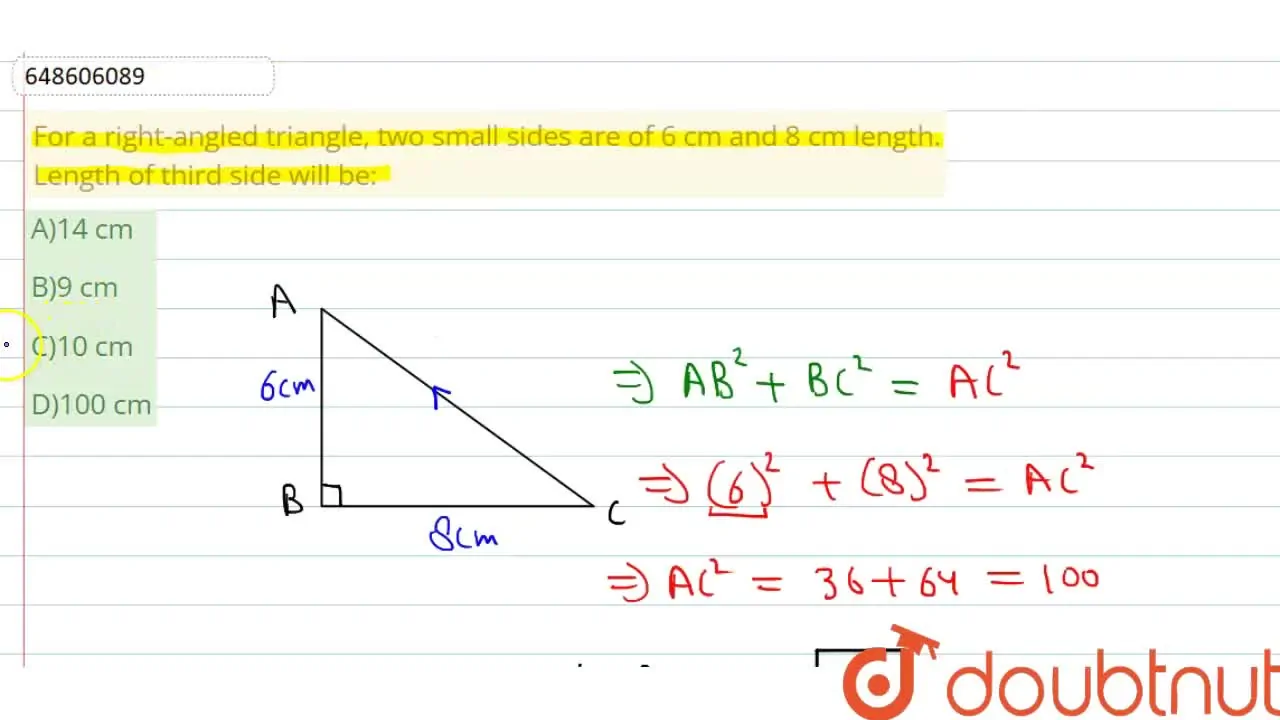 648606089
For a right-angled triangle, two small sides are of 6 cm and 8 cm length.
Length of third side will be:
A)14 cm
B)9 cm
C)10 cm
D)100 cm
A
6cm
B
8cm
C
⇒ AB² + BC² = AC²
⇒ (6)² + (8)² = AC²
⇒ AC² = 36 + 64 = 100
doubtnut